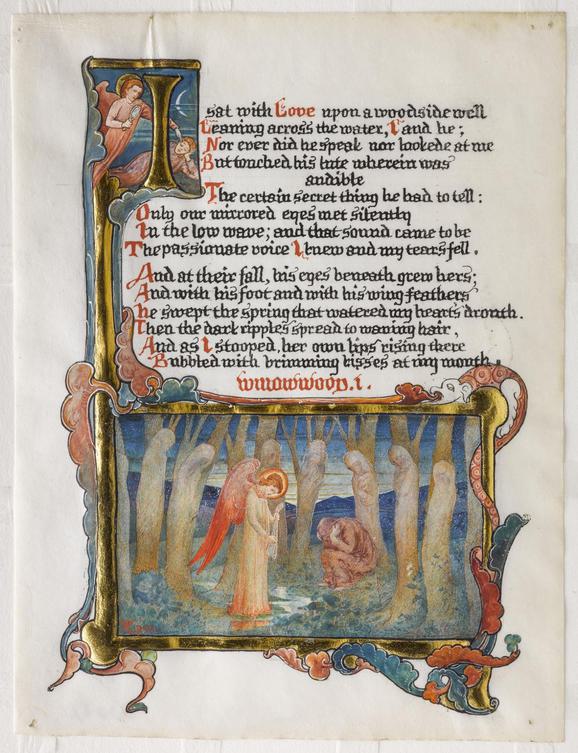 I sat with Love upon a woodside well
Leaning across the water, I and he ;
Nor ever did he speak nor lookede at me
But touched his lute wherein was
audible
The certain secret thing he had to tell :
Only our mirrored eyes met silently
In the low wave; and that sound came to be
The passionate voice I knew and my tears fell.
And at their fall, his eyes beneath grew hers;
And with his foot and with his wing feathers
he swept the spring that watered my hearts drouth.
Then the dark ripples spread to waving hair,
And as I stooped, her own lips rising there
Bubbled with brimming kisses at my mouth.
willowwood. i.